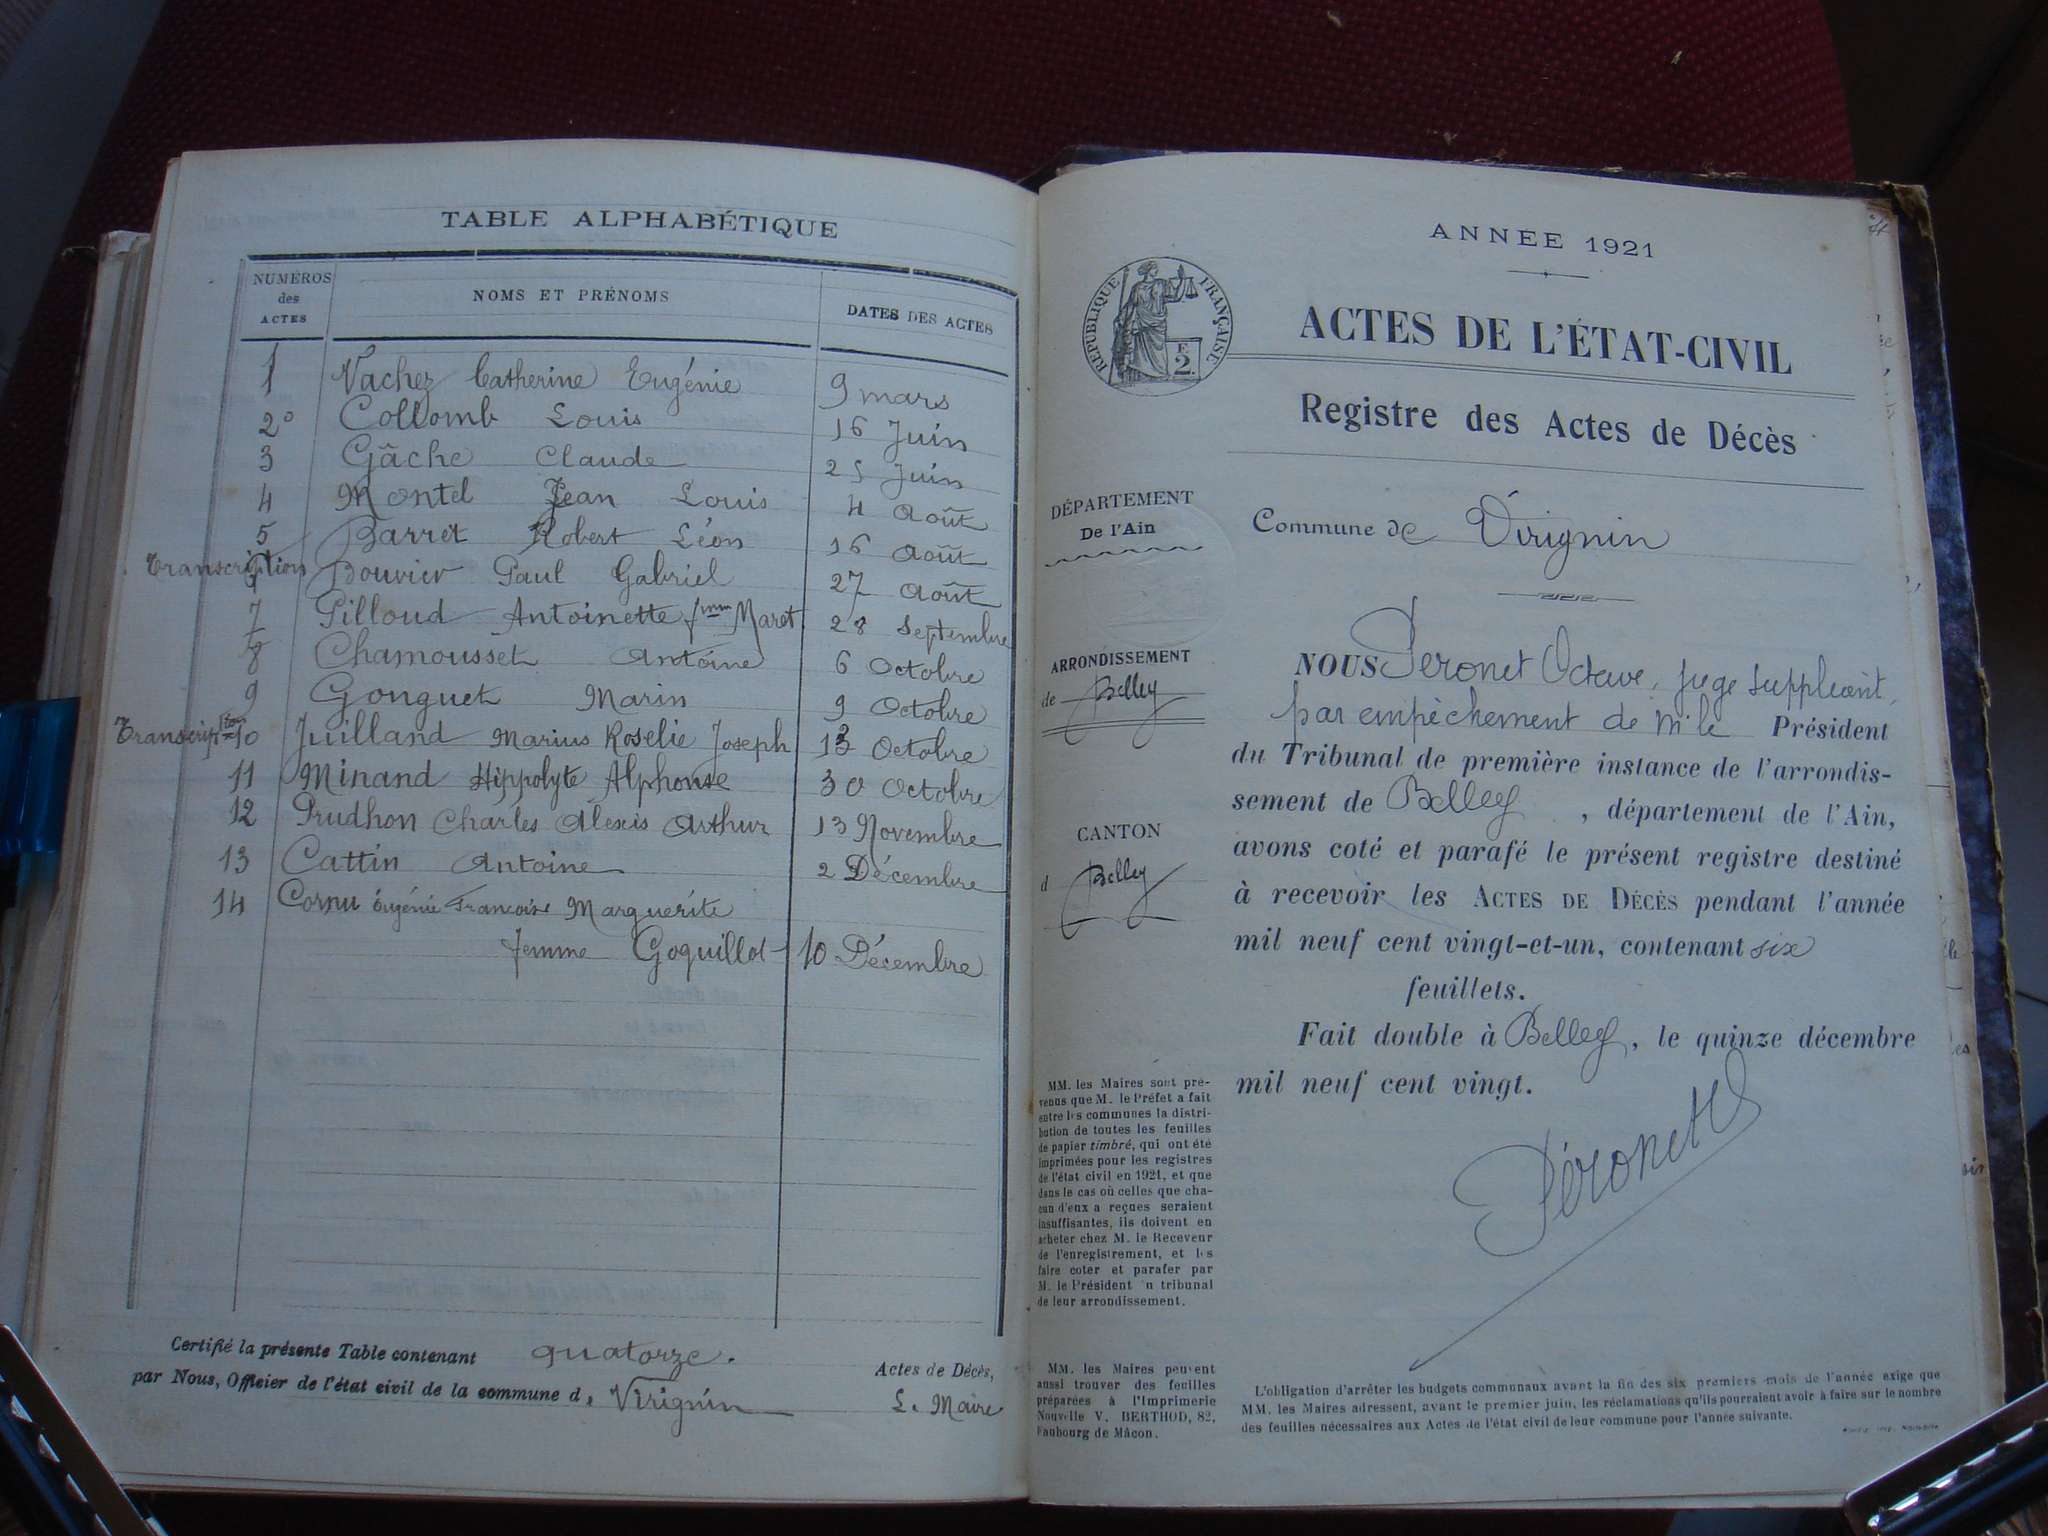 TABLE ALPHABÉTIQUE
NUMÉROS des ACTES NOMS ET PRÉNOMS DATES DES ACTES
1 Vachez Catherine Eugénie 9 mars
2° Collomb Louis 16 Juin
3 Gâche Claude 25 Juin
4 Montel Jean Louis 4 Août
5 Barret Robert Léon 16 Août
Transcription 6 Bouvier Paul Gabriel 27 Août
7 Pilloud Antoinette fme Maret 28 Septembre
8 Chamousset Antoine 6 Octobre
9 Gonguet Marin 9 Octobre
Transcription 10 Juilland Marius Roselie Joseph 13 Octobre
11 Minand Hippolyte Alphonse 30 Octobre
12 Prudhon Charles Alexis Arthur 13 Novembre
13 Cattin Antoine 2 Décembre
14 Cornu Eugénie Françoise Marguerite
femme Goquillot 10 Décembre
Certifié la présente Table contenant quatorze. Actes de Décès,
par Nous, Officier de l'état civil de la commune d, Virignin L. Maire
ANNÉE 1921
RÉPUBLIQUE FRANÇAISE
2 F.
ACTES DE L'ÉTAT-CIVIL
Registre des Actes de Décès
DÉPARTEMENT
De l'Ain
Commune de Virignin
ARRONDISSEMENT
de Belley
CANTON
d Belley
NOUS Peronet Octave, juge suppléant,
par empêchement de M. le Président
du Tribunal de première instance de l'arrondis-
sement de Belley, département de l'Ain,
avons coté et parafé le présent registre destiné
à recevoir les ACTES DE DÉCÈS pendant l'année
mil neuf cent vingt-et-un, contenant six
feuillets.
Fait double à Belley, le quinze décembre
mil neuf cent vingt.
Péronet
MM. les Maires sont pré-
venus que M. le Préfet a fait
entre les communes la distri-
bution de toutes les feuilles
de papier timbré, qui ont été
imprimées pour les registres
de l'état civil en 1921, et que
dans le cas où celles que cha-
cun d'eux a reçues seraient
insuffisantes, ils doivent en
acheter chez M. le Receveur
de l'enregistrement, et les
faire coter et parafer par
M. le Président du tribunal
de leur arrondissement.
MM. les Maires peuvent
aussi trouver des feuilles
préparées à l'Imprimerie
Nouvelle V. BERTHOD, 82,
Faubourg de Mâcon.
L'obligation d'arrêter les budgets communaux avant la fin des six premiers mois de l'année exige que
MM. les Maires adressent, avant le premier juin, les réclamations qu'ils pourraient avoir à faire sur le nombre
des feuilles nécessaires aux Actes de l'état civil de leur commune pour l'année suivante.